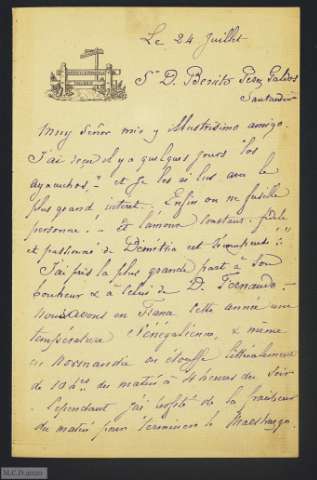 Le 24 Juillet
Sr D. Benito Perez Galdos
Santander
Muy Señor mio y illustrisimo amigo.
J'ai reçu il y a quelques jours "los
ayacuchos" et je les ai lus avec le
plus grand intérêt. Enfin on ne fusille
personne! et l'amour constant, fidèle
et passionné de Démétria est
J'ai pris la plus grande part à son
bonheur & à celui de D. Fernando.
Nous avons en France cette année une
température Sénégalienne, & même
en Normandie on étouffe littéralement
de 10 hres du matin à 4 heures du soir
. Cependant j'ai profité de la fraicheur
du matin pour terminer le Maestrazgo.